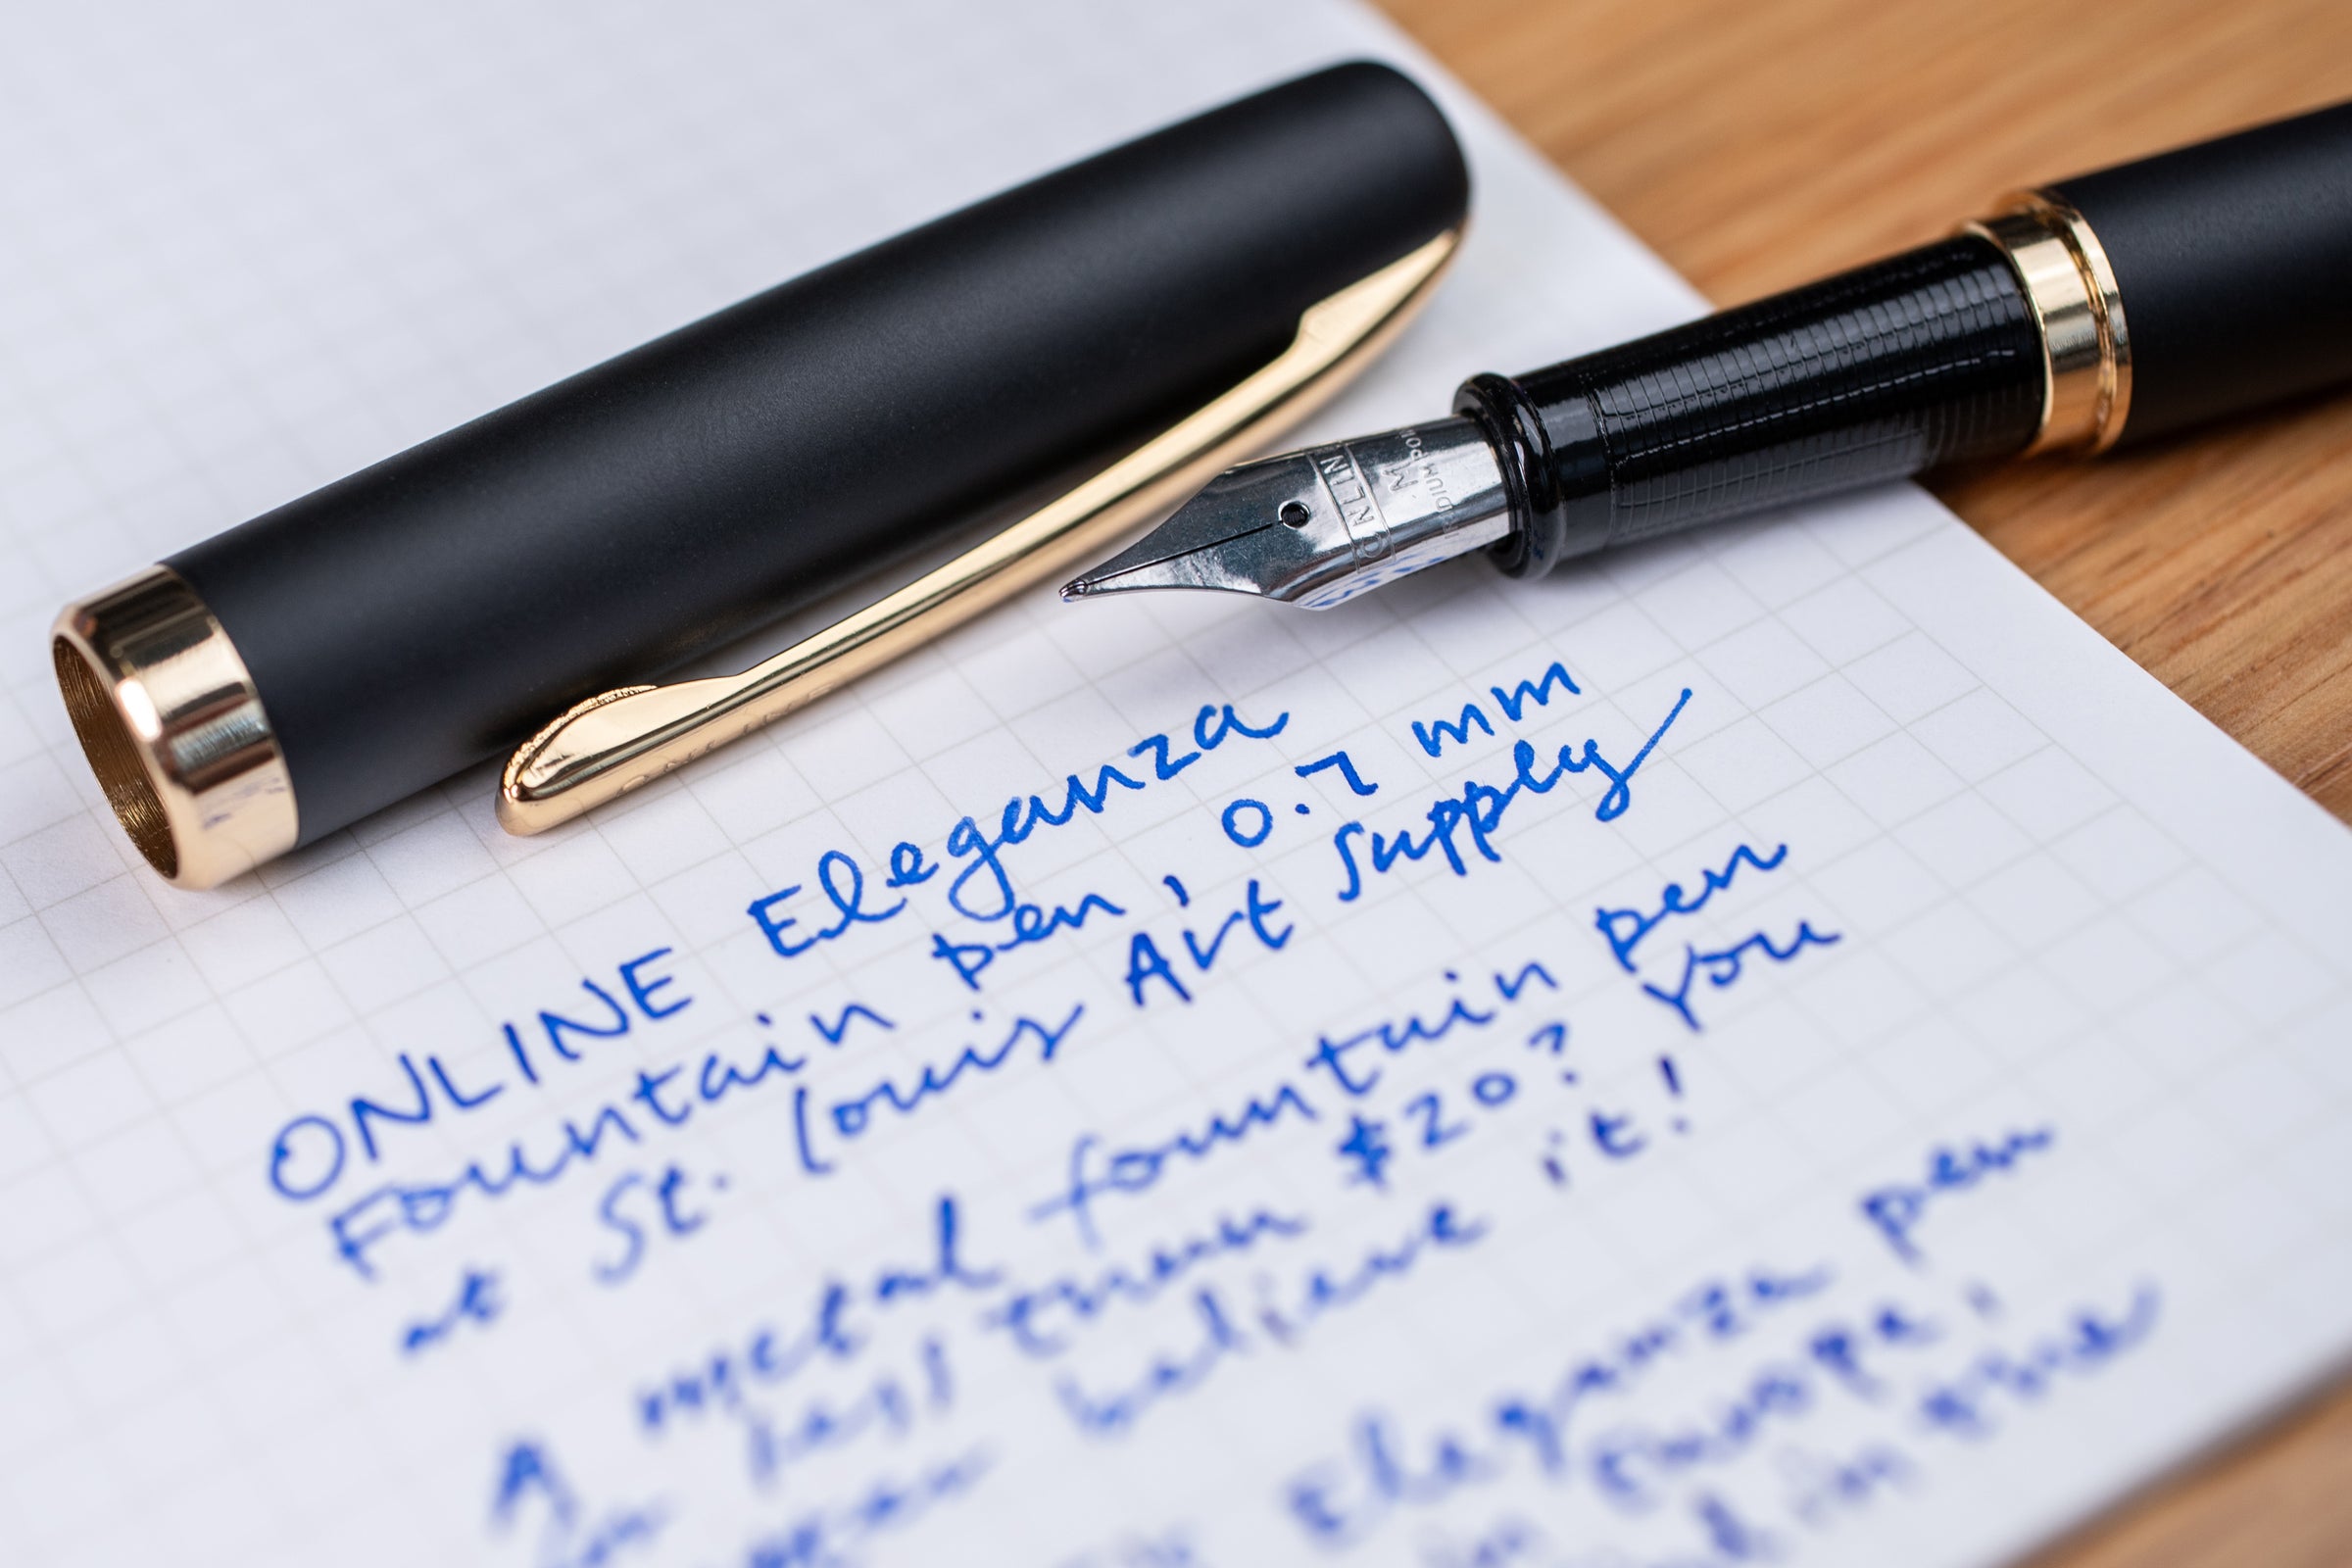 ONLIN
M
ONLINE
ONLINE Eleganza
Fountain pen, 0.7 mm
at St. Louis Art Supply
A metal fountain pen
for less than $20? You
can believe it!
Eleganza pen
in Europe,
in